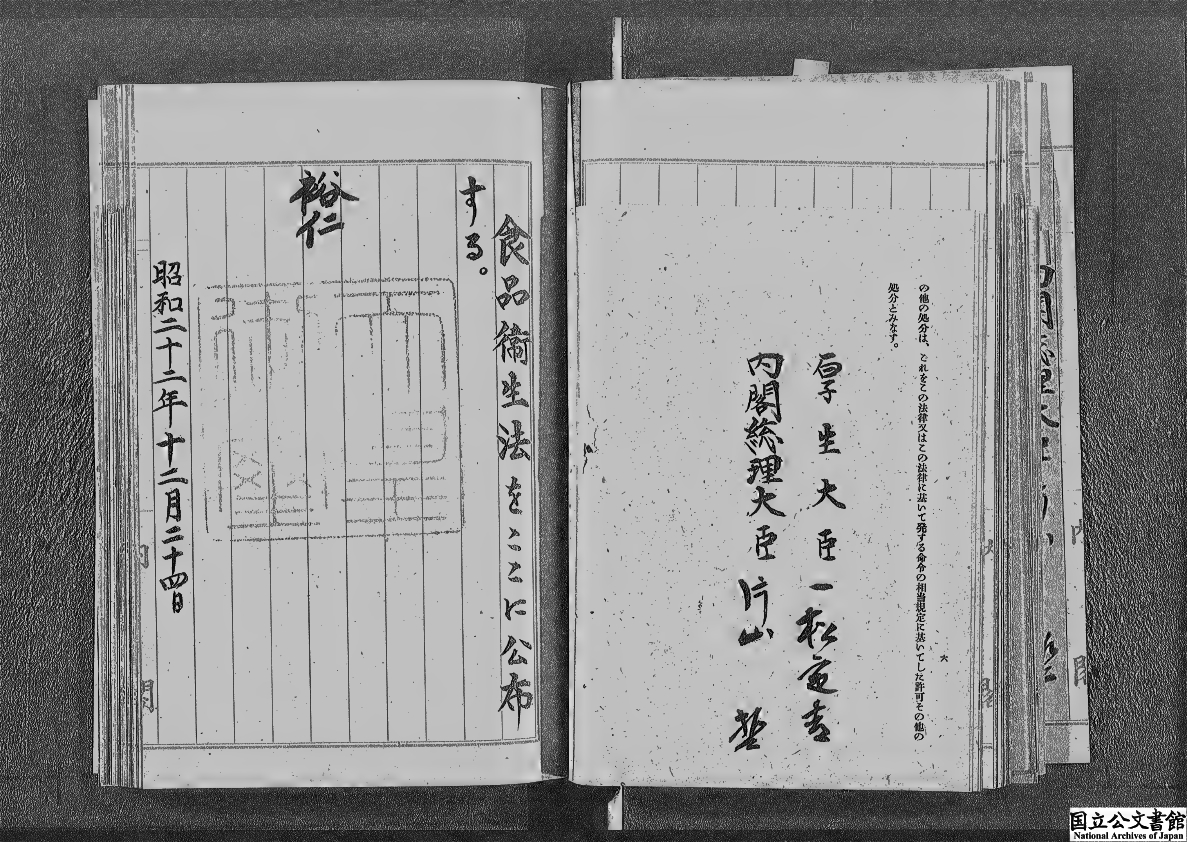 の他の処分は、これをこの法律又はこの法律に基いて発する命令の相当規定に基いてした許可その他の
処分とみなす。
六
厚生大臣一松定吉
内閣総理大臣片山哲
食品衞生法をここに公布
する。
裕仁
昭和二十二年十二月二十四日
国立公文書館
National Archives of Japan